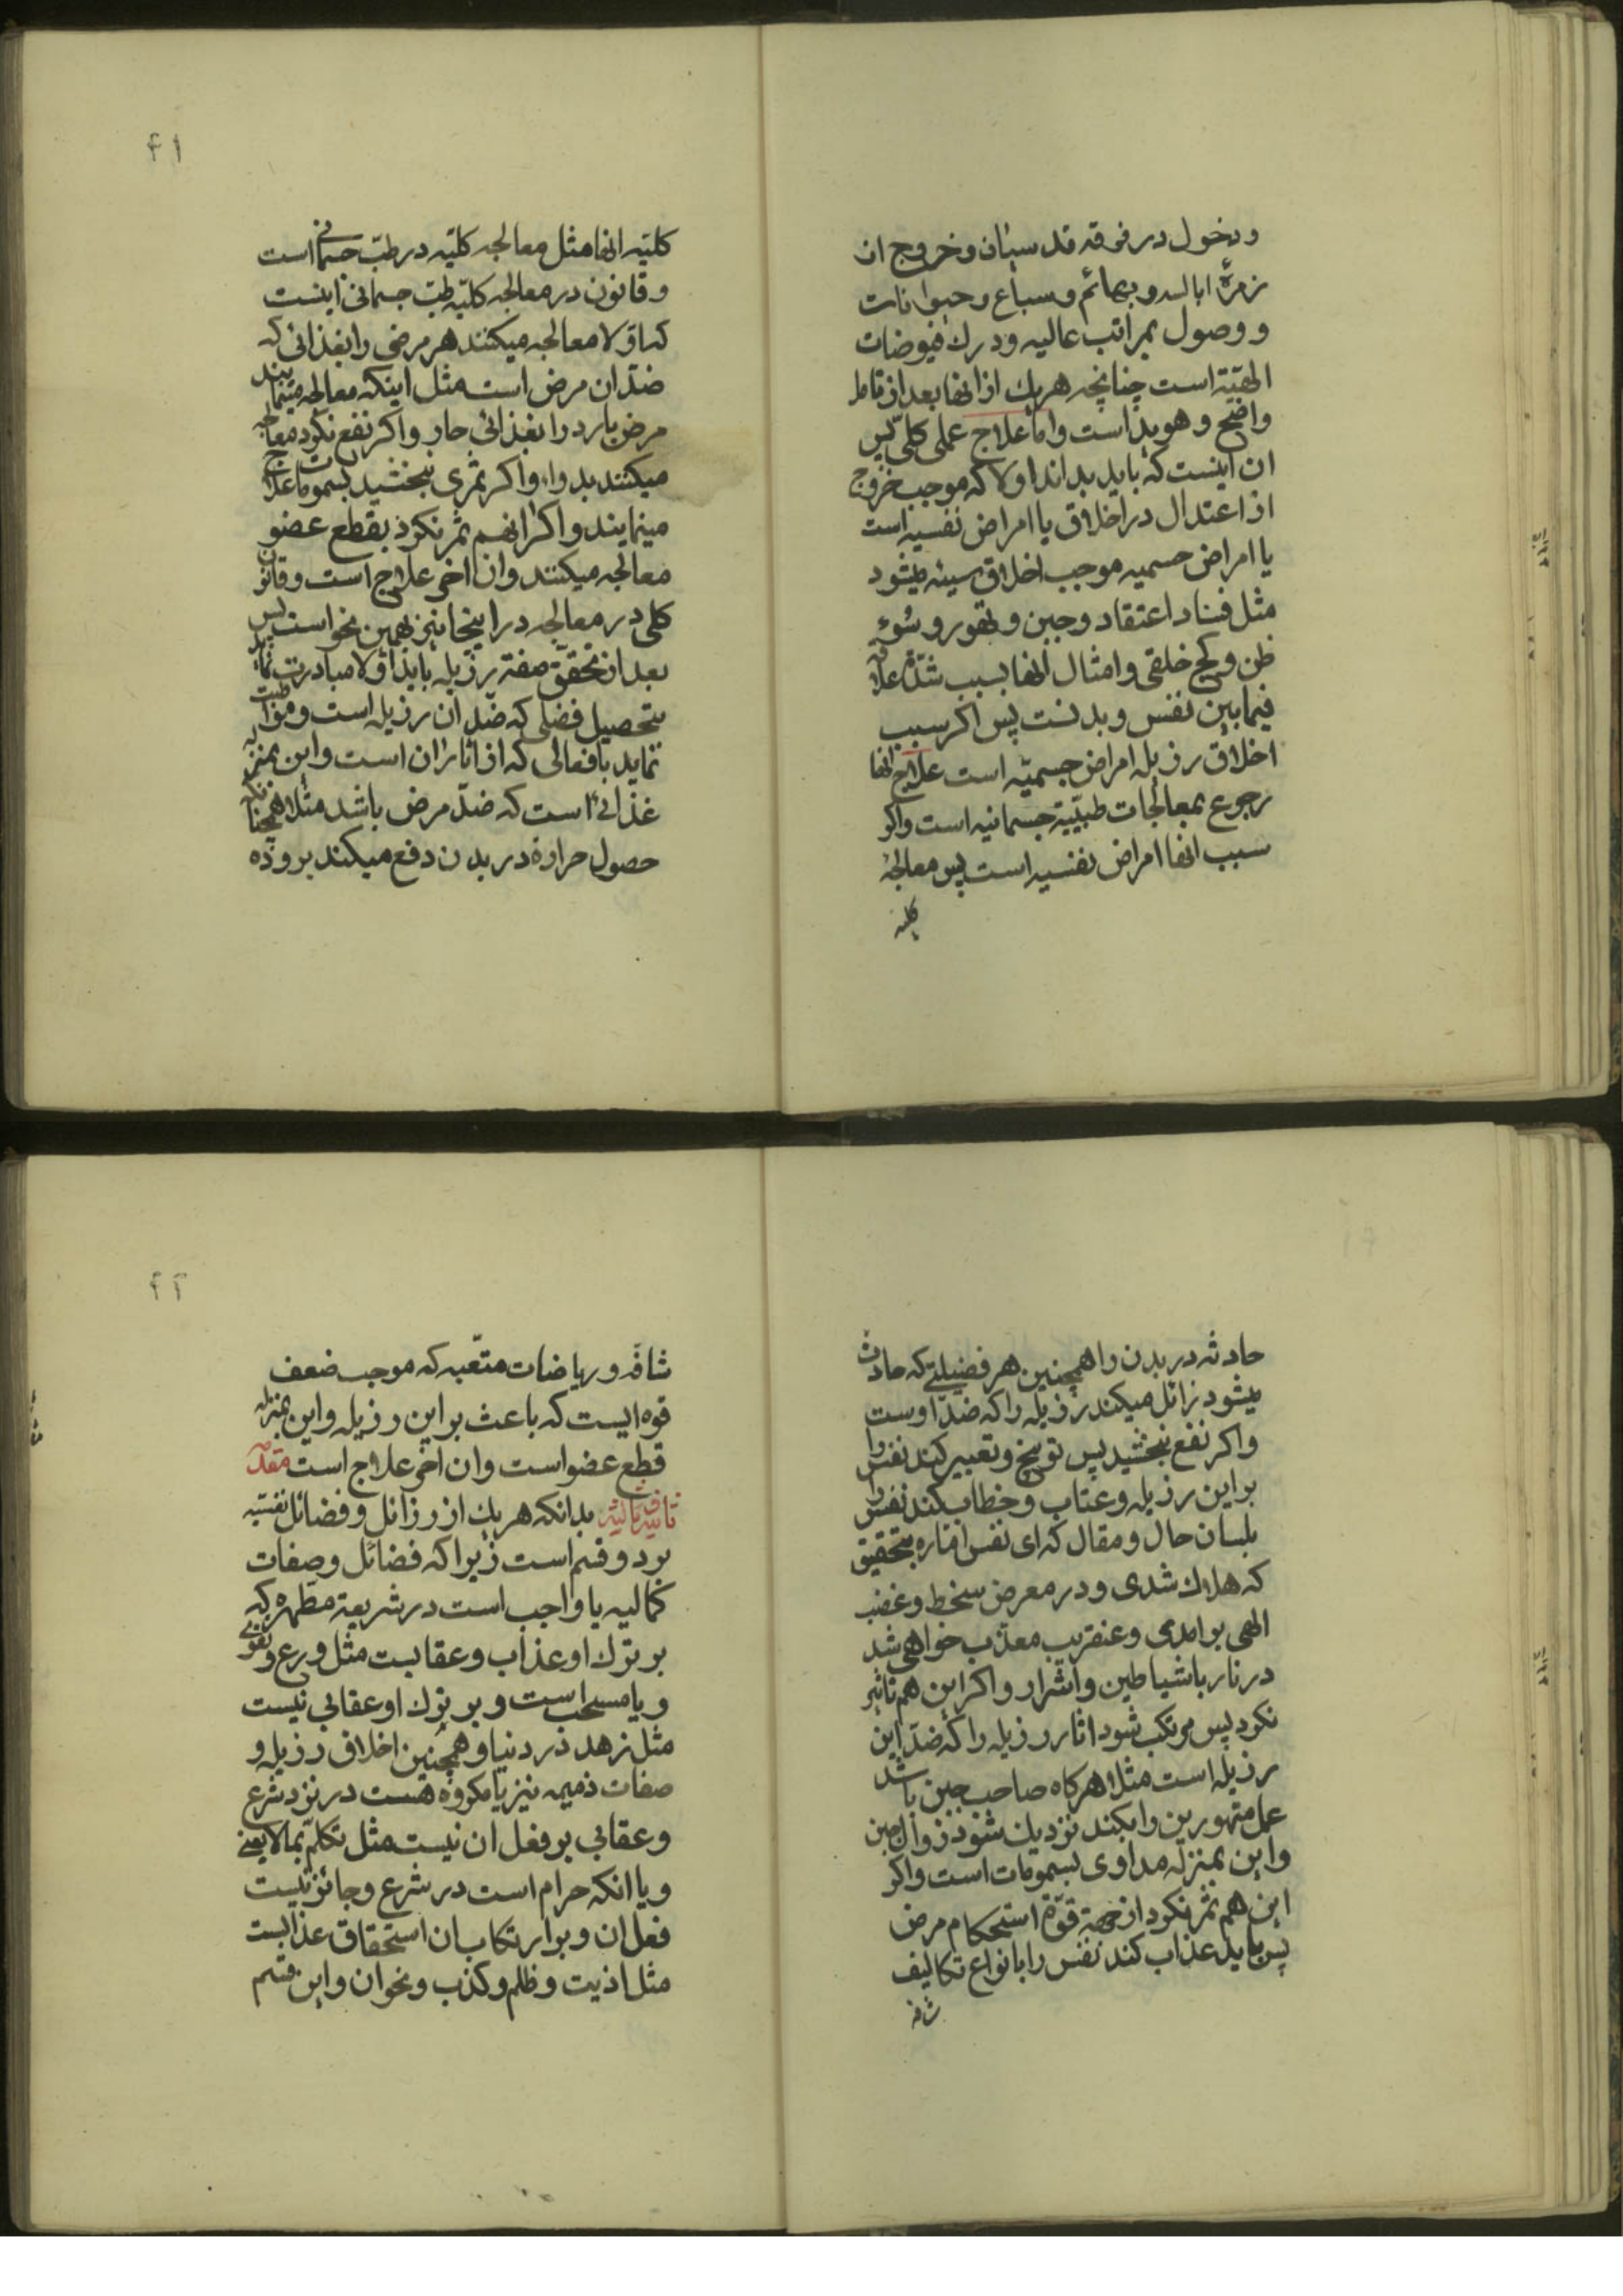 ودخول در فرقه قدسیان و خروج از
زمرهٔ ابالسه و بهائم و سباع و حیوانات
و وصول بمراتب عالیه و درك فیوضات
الهیّة است چنانچه هریك از انها بعد از تامل
واضح و هویداست واما علاج عملی کلی پس
ان اینست که باید بداند اولا که موجب خروج
از اعتدال در اخلاق یا امراض نفسیه است
یا امراض جسمیه موجب اخلاق سیئه میشود
مثل فساد اعتقاد و جبن و تهور و سُوء
ظن و کج خلقی و امثال انها بسبب شدّة علاقه
فیما بین نفس و بدنست پس اکر سبب
اخلاق رذیله امراض جسمیّه است علاج انها
رجوع بمعالجات طبیّة جسمانیه است واکر
سبب انها امراض نفسیه است پس معالجهٔ
کلیه
۴۱
کلیّه انها مثل معالجه کلیّه در طبّ جسمانی است
و قانون در معالجه کلیّه طبّ جسمانی اینست
که اوّلا معالجه میکنند هر مرضی را بغذائی که
ضدّ ان مرض است مثل اینکه معالجه مینمایند
مرض بارد را بغذائی حار و اکر نفع نکرد معالجه
میکنند بدوا و اکر ثمری نبخشید بسمومات علاج
مینمایند و اکر انهم ثمر نکرد بقطع عضو
معالجه میکنند و ان اخر علاج است و قانون
کلی در معالجه در اینجا نیز بهمین نحو است پس
بعد از تحقّق صفة رذیله باید اوّلا مبادرت نماید
بتحصیل فضلی که ضدّ ان رذیله است و مواظبت
نماید بافعالی که از اثار ان است و این بمنزله
غذائی است که ضدّ مرض باشد مثلا همچنانکه
حصول حرارة در بدن دفع میکند برودة
حادثه در بدن را همچنین هر فضیلتی که حادث
میشود زائل میکند رذیله را که ضدّ اوست
واکر نفع نبخشید پس توبیخ و تعبیر کند نفس را
بر این رذیله و عتاب و خطاب کند نفس را
بلسان حال و مقال که ای نفس امّاره بتحقیق
که هلاك شدی و در معرض سخط و غضب
الهی برامدی و عنقریب معذّب خواهی شد
در نار باشیاطین و اشرار و اکر این هم تاثیر
نکرد پس مرتکب شود اثار رذیله را که ضدّ این
رذیله است مثلا هرکاه صاحب جبن باشد
عمل متهورین را بکند نزدیك شود زوال جبن
و این بمنزله مداوی بسمومات است واکر
این هم ثمر نکرد از جهة قوّة استحکام مرض
پس باید عذاب کند نفس را بانواع تکالیف
شاقه
۴۲
شاقّه و ریاضات متعبه که موجب ضعف
قوه ایست که باعث بر این رذیله و این بمنزله
قطع عضو است و ان اخر علاج است مقدّمه
ثالثه بدانکه هریك از رذائل و فضائل نفسیّه
بر دو قسم است زیرا که فضائل و صفات
کمالیه یا واجب است در شریعة مطهره که
بر ترك او عذاب و عقابست مثل ورع و تقوی
و یا مستحب است و بر ترك او عقابی نیست
مثل زهد در دنیا و همچنین اخلاق رذیله و
صفات ذمیمه نیز یا مکروه هست در نزد شرع
و عقابی بر فعل ان نیست مثل تکلّم بمالایعنی
و یا انکه حرام است در شرع و جائز نیست
فعل ان و بر ارتکاب ان استحقاق عذابست
مثل اذیت و ظلم و کذب و نحو ان و این قسم